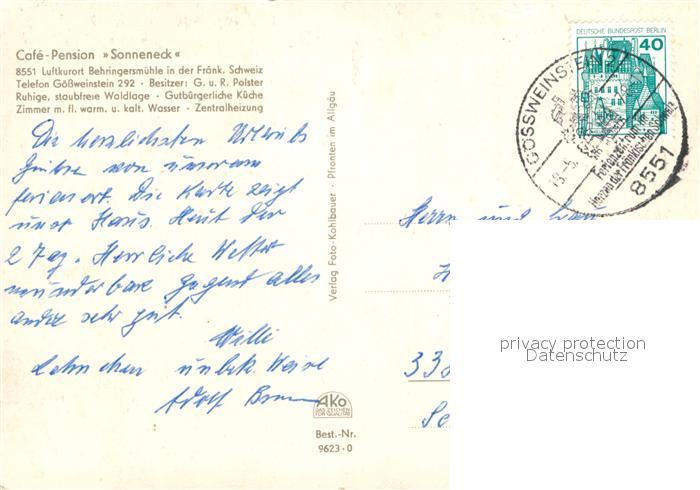 Café-Pension »Sonneneck«
8551 Luftkurort Behringersmühle in der Fränk. Schweiz
Telefon Gößweinstein 292 · Besitzer: G. u. R. Polster
Ruhige, staubfreie Waldlage · Gutbürgerliche Küche
Zimmer m. fl. warm. u. kalt. Wasser · Zentralheizung
Die herzlichsten Urlaubs
Grüße von unserem
ferienort. Die Karte zeigt
unser Haus. Heut der
2 Tag. Herrliche Wetter
wunderbare Gegend alles
andre sehr gut.
Willi
Lehnchen unbek. Weise
Adolf
Verlag Foto-Kohlbauer · Pfronten im Allgäu
AKO
DAS ZEICHEN
FÜR QUALITÄT
Best.-Nr.
9623-0
DEUTSCHE BUNDESPOST BERLIN
40
GÖSSWEINSTEIN
8551
Herrn und Frau
33
privacy protection
Datenschutz